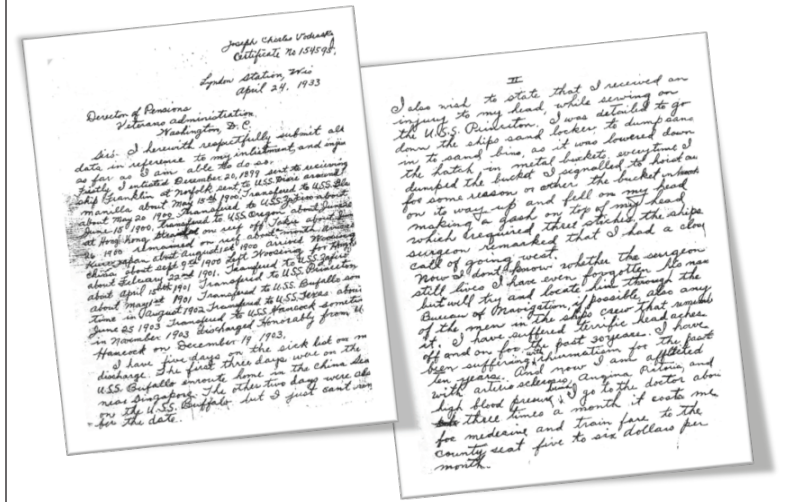 Joseph Charles Vodraska
Certificate No 154598.
Lyndon Station, Wis
April 24. 1933
Director of Pensions
Veterans Administration
Washington D.C.
Sir: I herewith respectfully submit all
data in reference to my enlistment, and
as far as I am able to do so.
Firstly I enlisted December 20, 1899 sent to recieving
ship Franklin at Norfolk sent to U.S.S. Dixie around
manilla about May 15th 1900. Transfered to U.S.S.
about May 20 1900. Transfered to U.S.S. Zafiro about
June 15th 1900, transfered to U.S.S. Oregon about June
at Hong Kong on reef off Taku about
28 1900 remained on reef about month arrived
Kure Japan about August 1st 1900 arrived Woosung
China about Sept 9th 1900 left Woosung for Hong
about February 22nd 1901. Transfered to U.S.S. Zafiro
about April 15th 1901 Transfered to U.S.S. Princeton
about May 1st 1901 Transfered to U.S.S. Buffalo some
time in August 1902. Transfered to U.S.S. Texas about
June 25 1903 Transfered to U.S.S. Hancock sometime
in November 1903 Discharged Honorably from U.
Hancock on December 19, 1903.
I have five days on the sick list on m
discharge. The first three days were on the
U.S.S. Buffalo enroute home in the China Sea
near Singapore. The other two days were also
on the U.S.S. Buffalo but I just can't
ber the date.
II
I also wish to state that I received an
injury to my head, while serving on
the U.S.S. Princeton, I was detailed to go
down the ships sand locker, to dump sand
in to sand bins, as it was lowered down
the hatch in metal buckets, everytime I
dumped the bucket I signalled to hoist
for some reason or others the bucket
on its way up and fell on my head
making a gash on top of my head
which required three stiches, the ships
surgeon remarked that I had a close
call of going west.
Now I dont know whether the surgeon
still lives I have even forgotten his name
but will try and locate him through the
Bureau of Navigation, if possible, also any
of the men in the ships crew that
it. I have suffered terrific headaches
off and on for the past 30 years. I have
been suffering with rhumatism for the past
ten years. And now I am afflicted
with arterio sclerosis, Angina and
high blood presure, I go to the doctor about
three times a month it costs me
for medecine and train fare to the
county seat five to six dollars per
month.